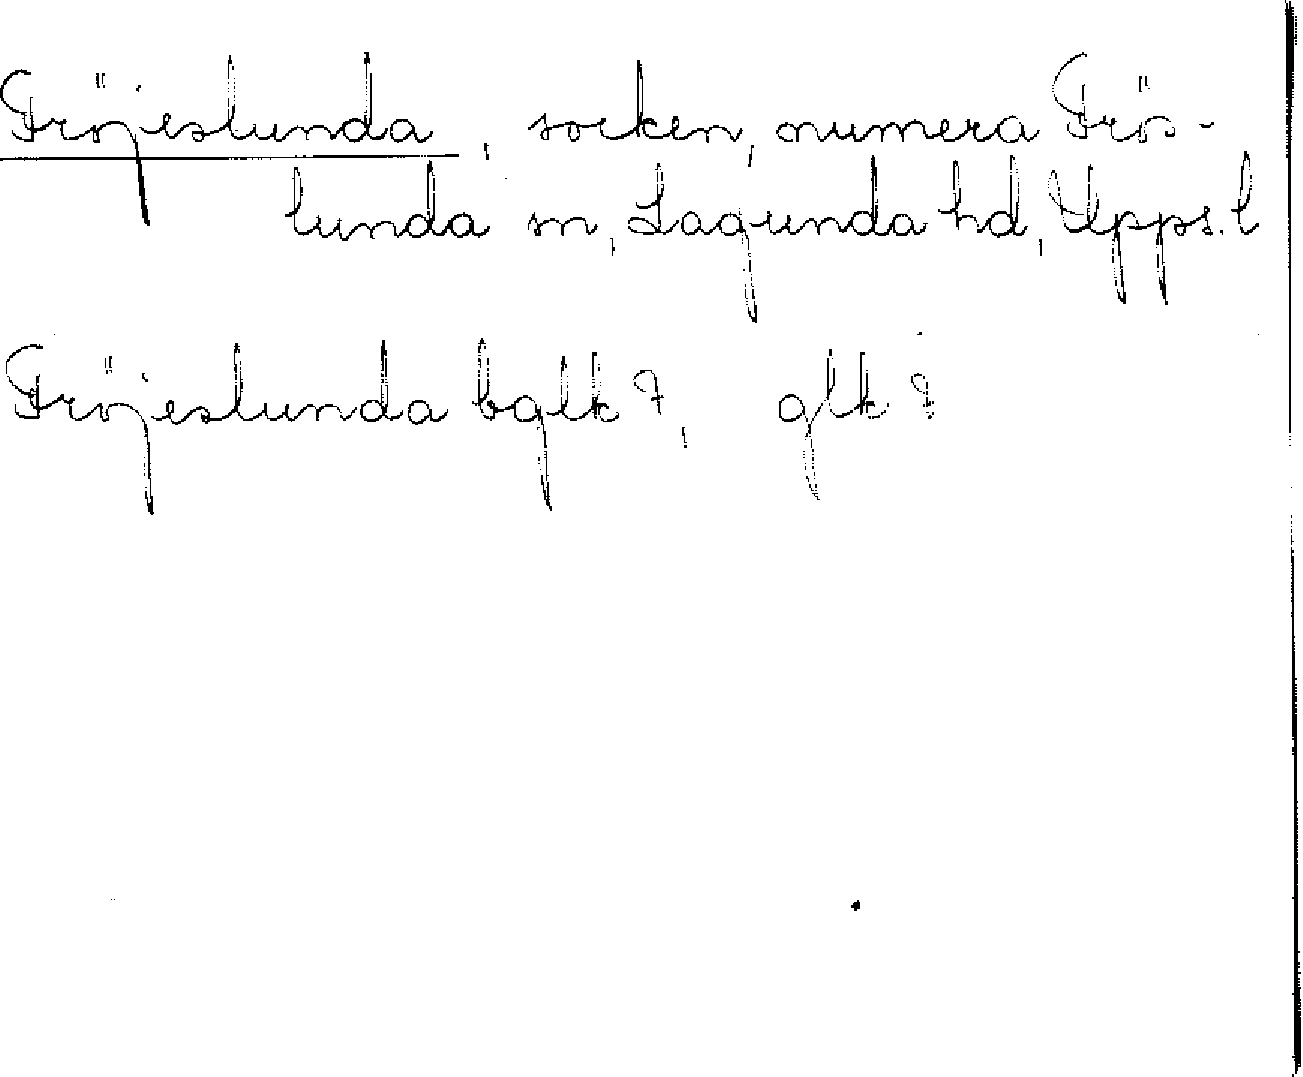 Fröjeslunda, socken, numera Frös-
lunda sn, Lagunda hd, Upps. l
Fröjeslunda bglk 7, glk 8